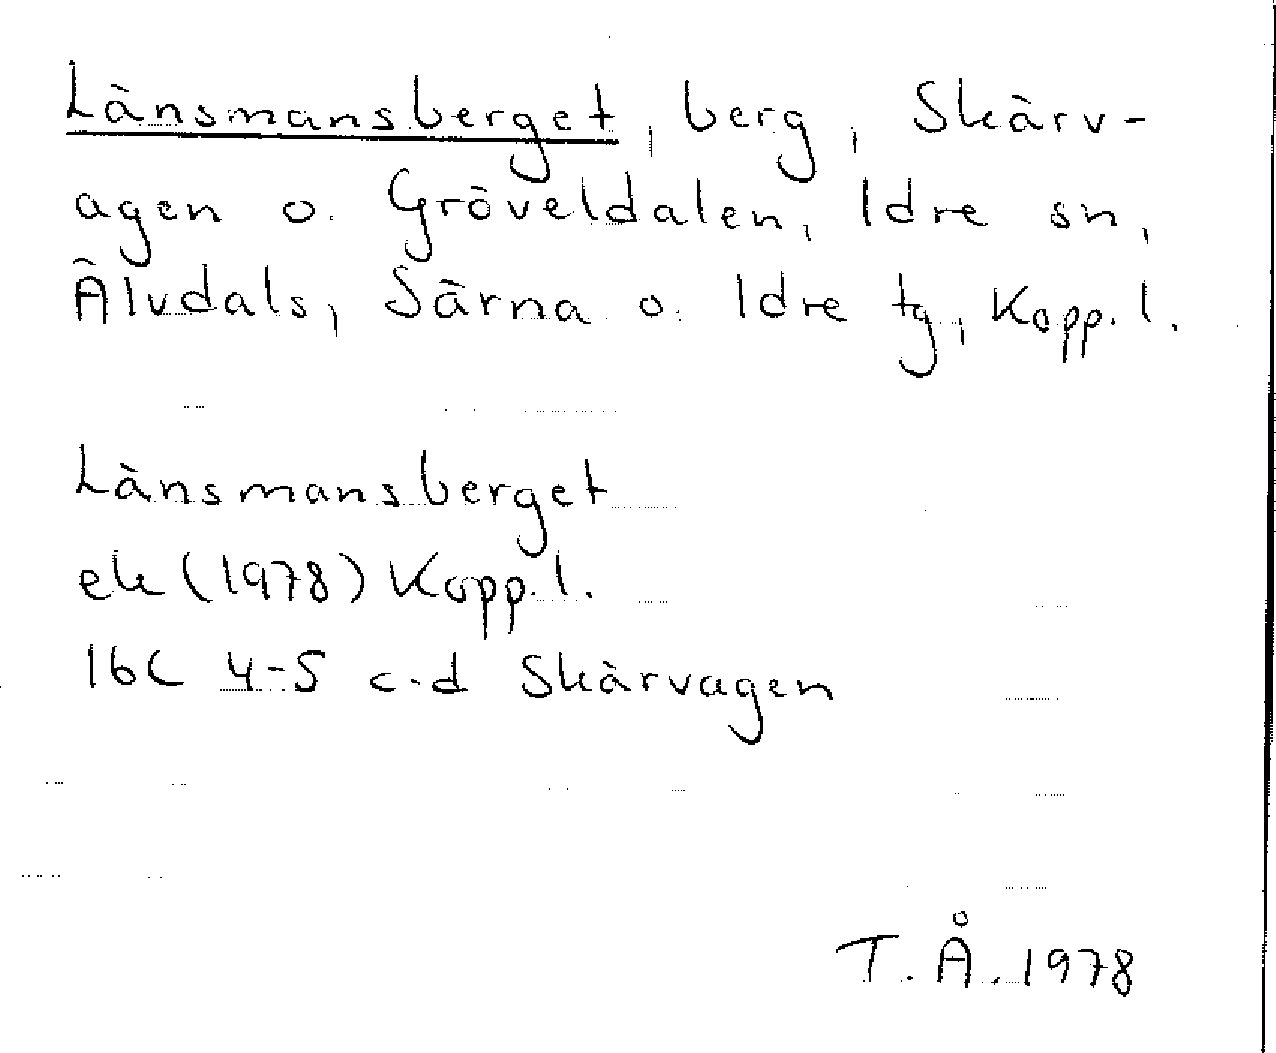 Länsmansberget, berg, Skärv-
agen o. Gröveldalen, Idre sn,
Älvdals, Särna o. Idre tg, Kopp. l.
Länsmansberget
ek (1978) Kopp. l.
16C 4-5 c-d Skärvagen
T. Å. 1978